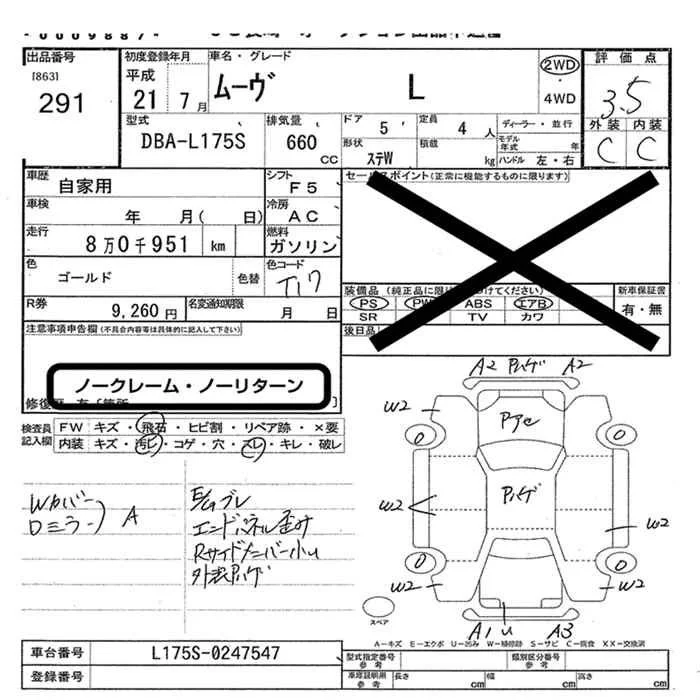 出品番号
[863]
291
初度登録年月
平成
21年7月
車名・グレード
ムーヴ L
2WD
・
4WD
評価点
3.5
外装 内装
C C
型式
DBA-L175S
排気量
660
CC
ドア
5
定員
4人
ディーラー・並行
形状
ステW
積載
kg
モデル年式 年
ハンドル 左・右
車歴
自家用
シフト
F5
セールスポイント(正常に機能するものに限ります)
車検
年 月( 日)
冷房
AC
走行
8万0千951 km
燃料
ガソリン
色
ゴールド
色替
色コード
T17
装備品(純正品に限り
けてください)
新車保証書
PS PW ABS エアB
有・無
SR TV カワ
R券
9,260円
名変通知期限
月 日
後日品
注意事項申告欄(不具合内容等は具体的に記入して下さい)
ノークレーム・ノーリターン
検査員
記入欄
FW キズ・飛石・ヒビ割・リペア跡・×要
内装 キズ・汚レ・コゲ・穴・スレ・キレ・破レ
Wカバー
ロミラー
A
E/Gブレ
エンドパネル歪み
Rサイドメンバー小u
外装Pハゲ
A2 Pハゲ A2
W2 W2
Pアセ
0 0
Pハゲ
W2 W2
0 0
W2 W2
A1 u A3
スペア
A−キズ E−エクボ U−凹み W−補修跡 S−サビ C−腐食 XX−交換済
車台番号
L175S-0247547
型式指定番号
参考
類別区分番号
参考
登録番号
車庫証明用
参考
長さ cm
幅 cm
高さ cm